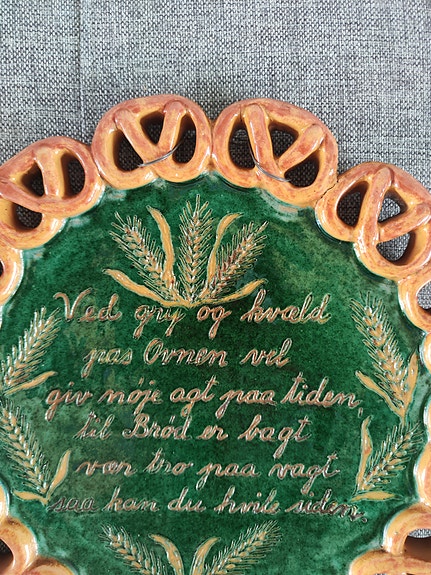 Ved gry og hvæld
pas Ovnen vel
giv nøje agt paa tiden,
til Brød er bagt
vær tro paa vagt
saa kan du hvile siden.